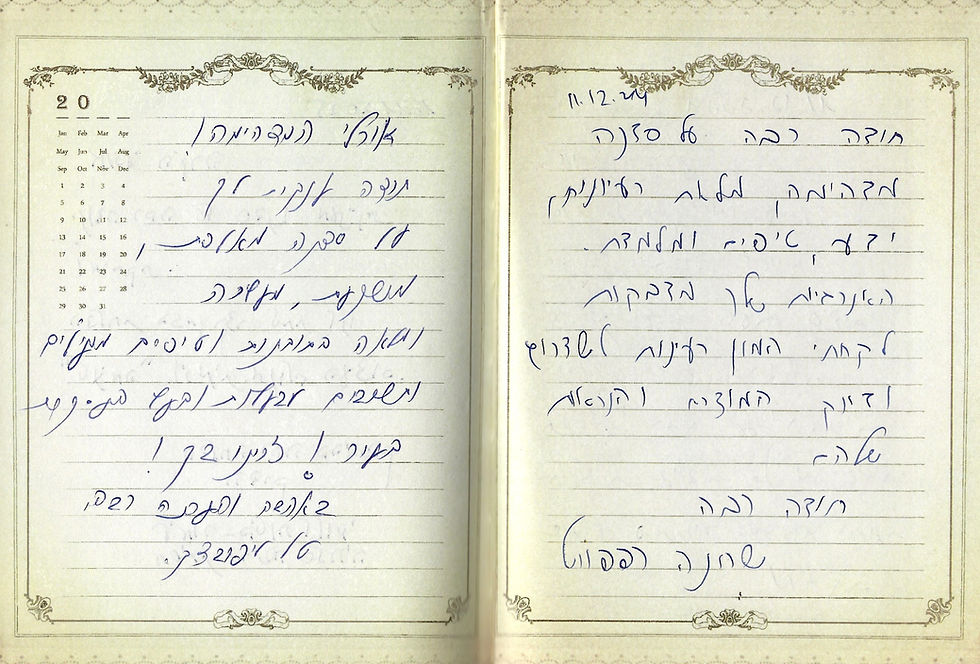 11.12.
תודה רבה על סדנה
מדהימה, מלאת רעיונות,
ידע, טיפים ומלמדת.
האנרגיות שלך מדבקות
לקחתי המון רעיונות לשדרוג
ודיוק המוצרים והנראות
שלהם
תודה רבה
שושנה רפפורט
20
Jan Feb Mar Apr
May Jun Jul Aug
Sep Oct Nov Dec
1 2 3 4
5 6 7 8
9 10 11 12
13 14 15 16
17 18 19 20
21 22 23 24
25 26 27 28
29 30 31
אורלי המדהימה!
תודה ענקית לך
על סדנה מאלפת,
מושקעת, מעשירה
ומלאה בתובנות וטיפים מועילים
וחשובים
באהבה והערכה רבה,
טל